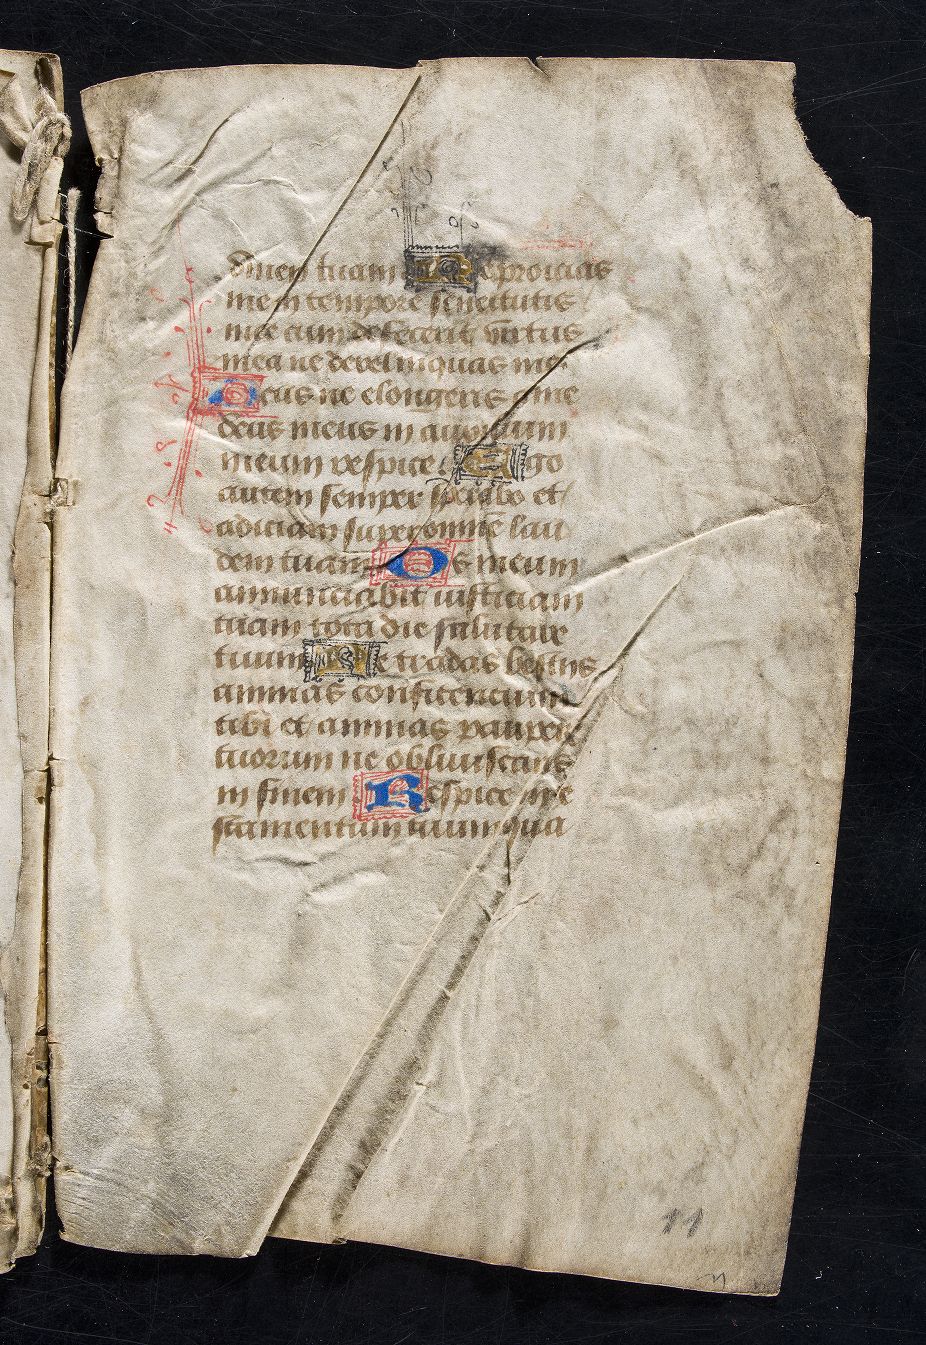 dinem tuam Ne proicias
me in tempore senectutis
mee cum defecerit virtus
mea ne derelinquas me
Deus ne elongeris a me
deus meus in auxilium
meum respice Ego
autem semper sperabo et
adiciam super omnē lau
dem tuam Os meum
annunciabit iusticiam
tuam tota die salutare
tuum Ne tradas bestijs
animas confitencium
tibi et animas pauperū
tuorum ne obliuiscaris
in finem Respice in te
stamentum tuum quia
11